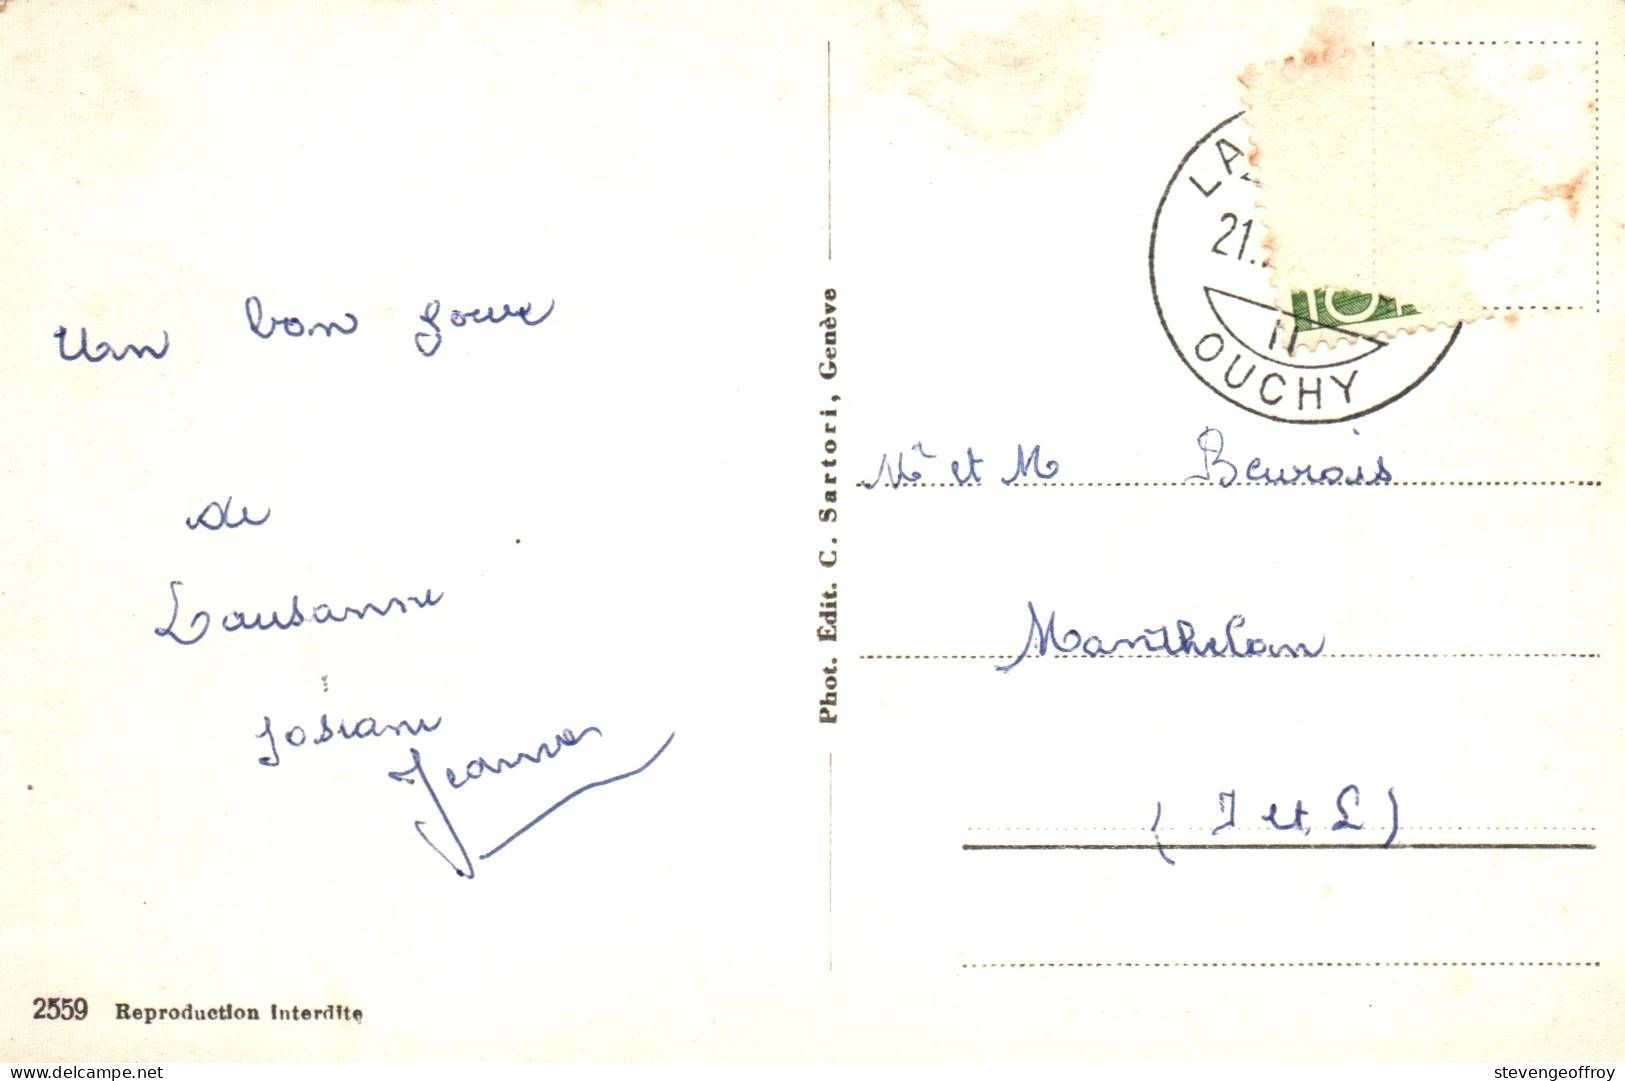 Un bon jour
de
Lausanne
Josiane
Jeanne
2559 Reproduction interdite
Phot. Edit. C. Sartori, Genève
21.
OUCHY
Mr et M Beurois
Manthelan
( I et L )
www.delcampe.net
stevengeoffroy